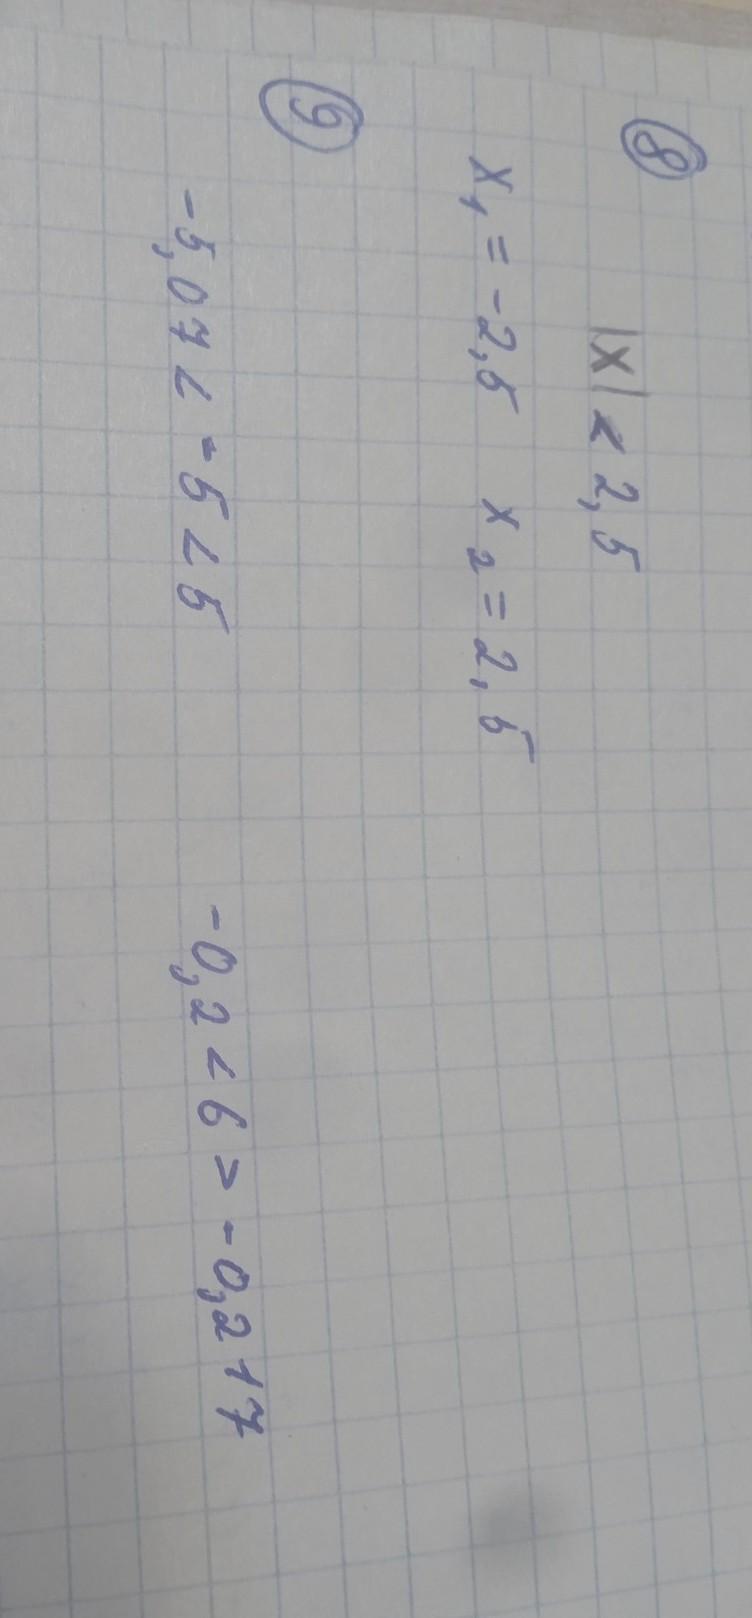 8
|x| < 2,5
x₁ = -2,5 x₂ = 2,5
9
-5,07 < -5 < 5 -0,2 < 6 > -0,217